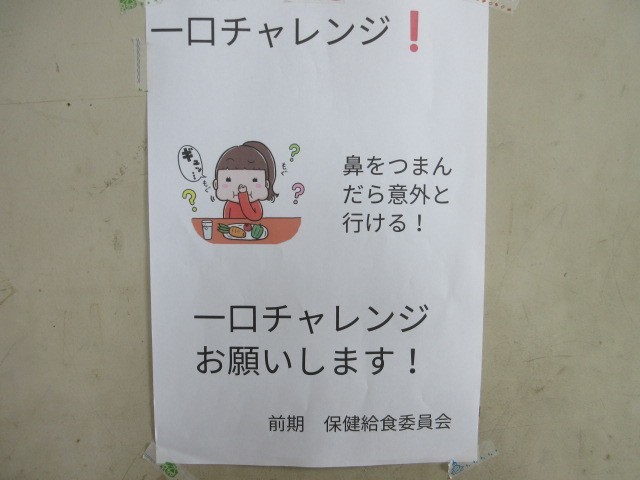 一口チャレンジ❗
ギュッ…
もぐ
もぐ
鼻をつまん
だら意外と
行ける！
一口チャレンジ
お願いします！
前期　保健給食委員会